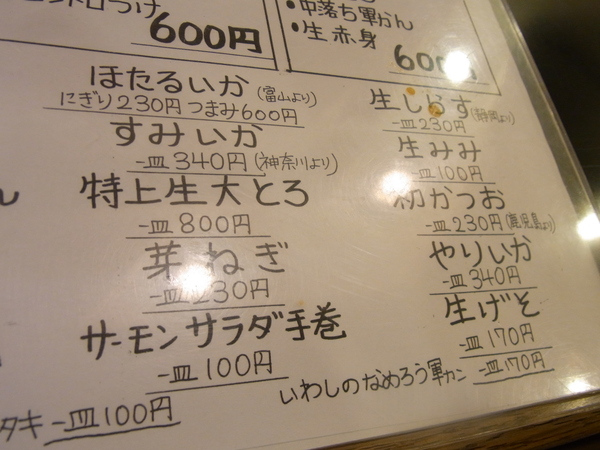 600円
・中落ち軍かん
・生赤身
600円
ほたるいか(富山より)
にぎり230円 つまみ600円
すみいか
一皿340円(神奈川より)
特上生大とろ
一皿800円
芽ねぎ
一皿230円
サーモンサラダ手巻
一皿100円
タキ 一皿100円
生しらす(静岡より)
一皿230円
生みみ
一皿100円
初かつお
一皿230円(鹿児島より)
やりいか
一皿340円
生げそ
一皿170円
いわしのなめろう軍カン 一皿170円